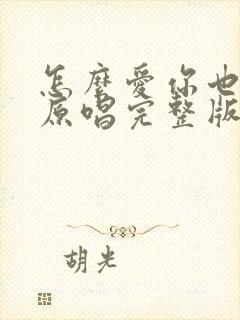 怎麼愛你也
原唱完整版
胡光